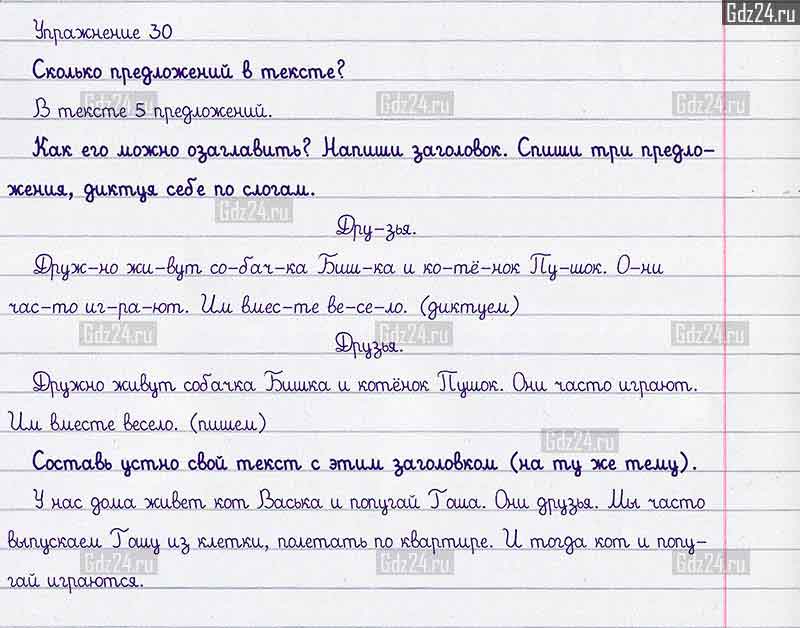 Gdz24.ru
Упражнение 30
Сколько предложений в тексте?
Gdz24.ru Gdz24.ru Gdz24.ru
В тексте 5 предложений.
Как его можно озаглавить? Напиши заголовок. Спиши три предло-
жения, диктуя себе по слогам.
Gdz24.ru
Дру-зья.
Друж-но жи-вут со-бач-ка Биш-ка и ко-тё-нок Пу-шок. О-ни
час-то иг-ра-ют. Им вмес-те ве-се-ло. (диктуем)
Gdz24.ru Gdz24.ru Gdz24.ru
Друзья.
Дружно живут собачка Бишка и котёнок Пушок. Они часто играют.
Им вместе весело. (пишем)
Gdz24.ru
Составь устно свой текст с этим заголовком (на ту же тему).
У нас дома живет кот Васька и попугай Гаша. Они друзья. Мы часто
выпускаем Гашу из клетки, полетать по квартире. И тогда кот и попу-
Gdz24.ru Gdz24.ru Gdz24.ru
гай играются.